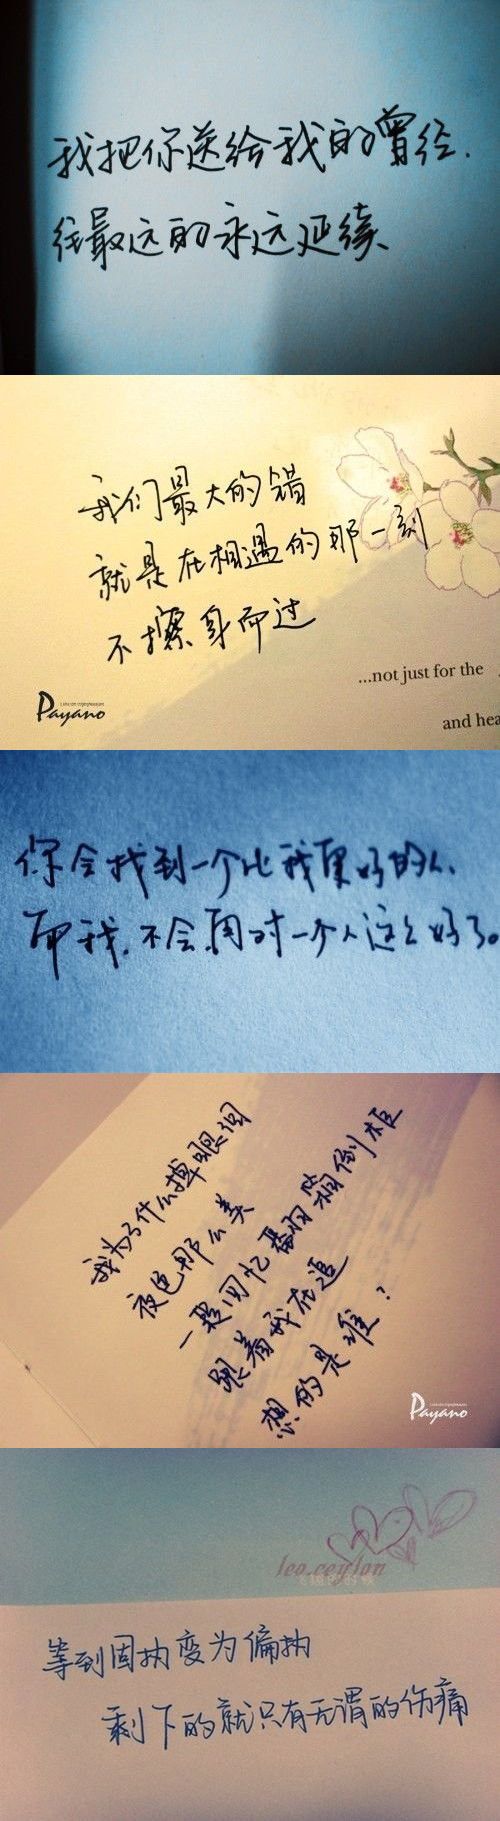 我把你送给我的曾经.
往最远的永远延续、
我们最大的错
就是在相遇的那一刻
不擦身而过
...not just for the
and hea
Payano
你会找到一个比我更好的人、
而我.不会再对一个人这么好了。
我为了什么掉眼泪
夜色那么美
一段回忆翻箱倒柜
跟着我在追
想的是谁?
Payano
leo.ceylon
等到固执变为偏执
剩下的就只有无谓的伤痛